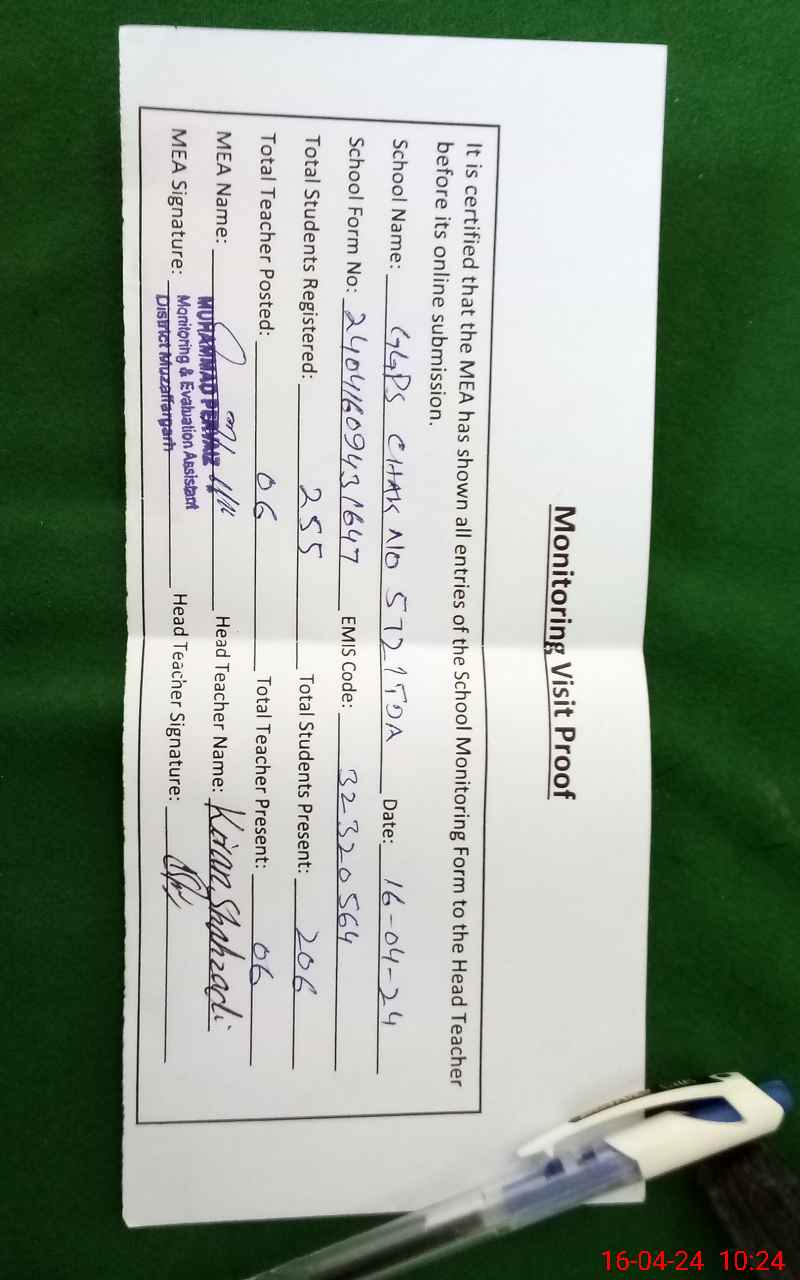 Monitoring Visit Proof
It is certified that the MEA has shown all entries of the School Monitoring Form to the Head Teacher
before its online submission.
School Name: GGPS CHAK NO 572 /TDA Date: 16-04-24
School Form No: 24041609431647 EMIS Code: 32320564
Total Students Registered: 255 Total Students Present: 206
Total Teacher Posted: 06 Total Teacher Present: 06
MEA Name: Head Teacher Name: Kiran Shahzadi
MUHAMMAD PERVAIZ
Monitoring & Evaluation Assistant
District Muzaffargarh
MEA Signature: Head Teacher Signature:
16-04-24 10:24